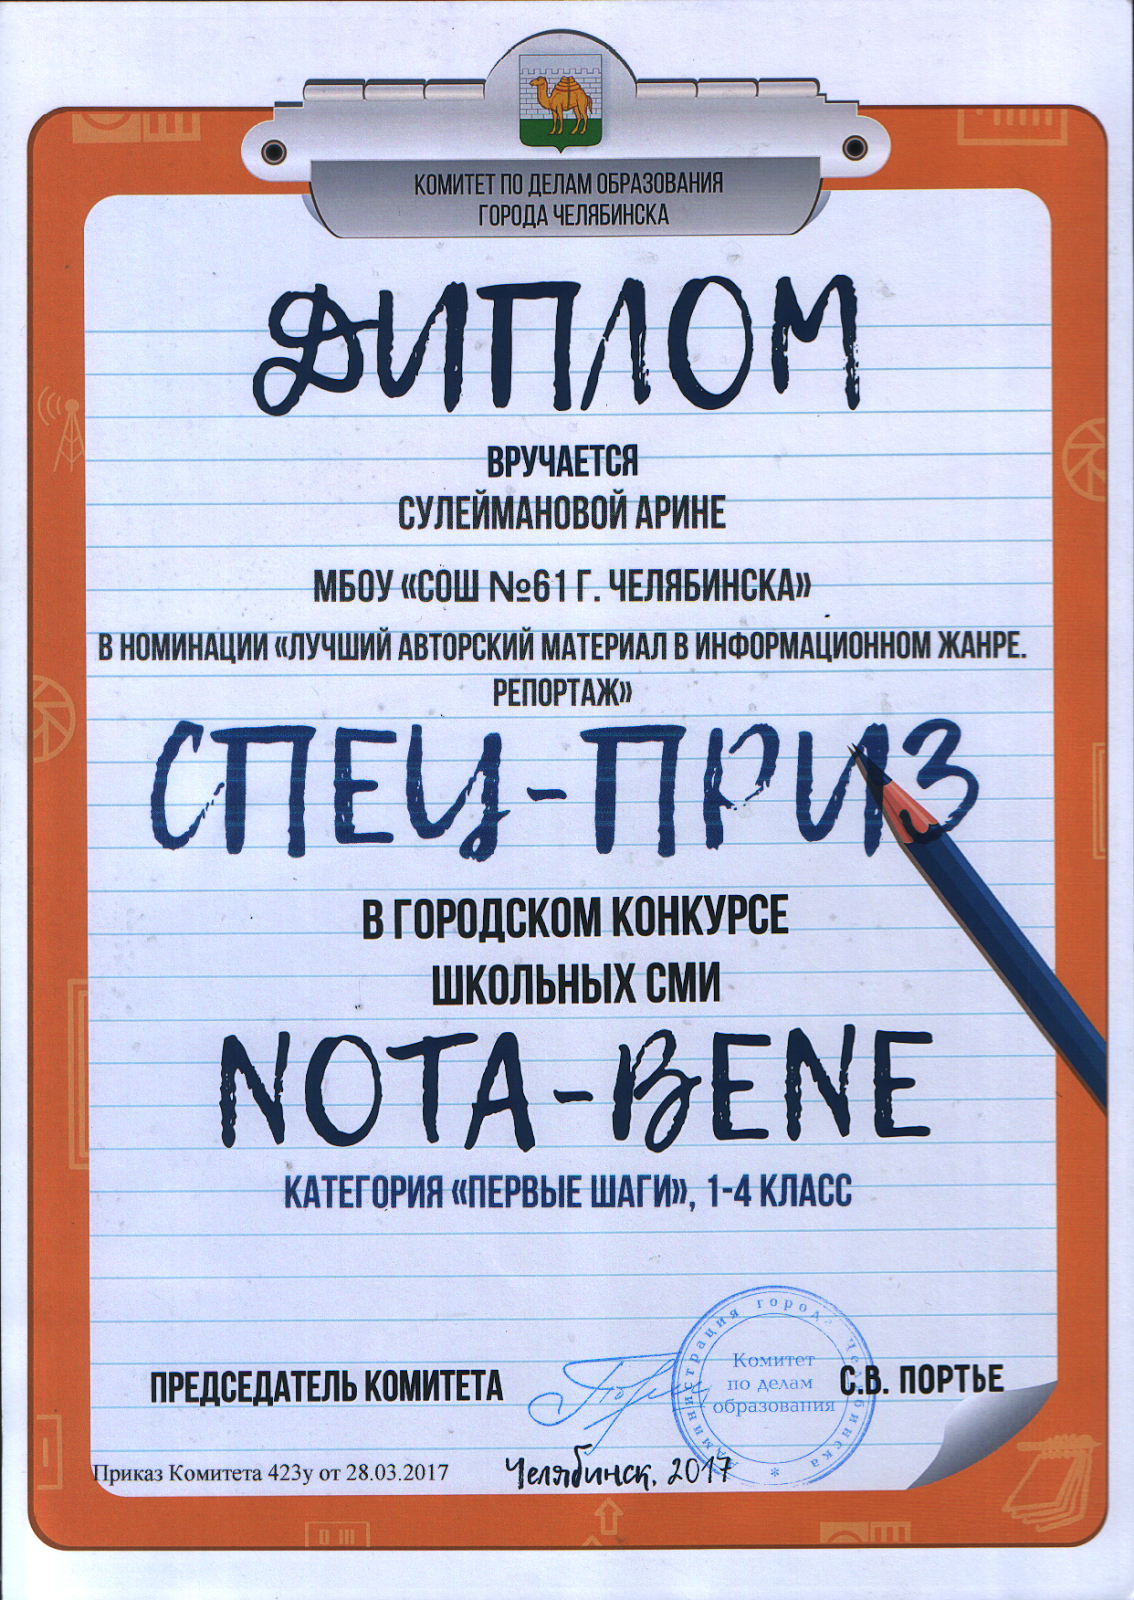 КОМИТЕТ ПО ДЕЛАМ ОБРАЗОВАНИЯ
ГОРОДА ЧЕЛЯБИНСКА
ДИПЛОМ
ВРУЧАЕТСЯ
СУЛЕЙМАНОВОЙ АРИНЕ
МБОУ «СОШ №61 Г. ЧЕЛЯБИНСКА»
В НОМИНАЦИИ «ЛУЧШИЙ АВТОРСКИЙ МАТЕРИАЛ В ИНФОРМАЦИОННОМ ЖАНРЕ.
РЕПОРТАЖ»
СПЕЦ-ПРИЗ
В ГОРОДСКОМ КОНКУРСЕ
ШКОЛЬНЫХ СМИ
NOTA-BENE
КАТЕГОРИЯ «ПЕРВЫЕ ШАГИ», 1-4 КЛАСС
ПРЕДСЕДАТЕЛЬ КОМИТЕТА
С.В. ПОРТЬЕ
Администрация города Челябинска *
Комитет
по делам
образования
Приказ Комитета 423у от 28.03.2017
Челябинск, 2017